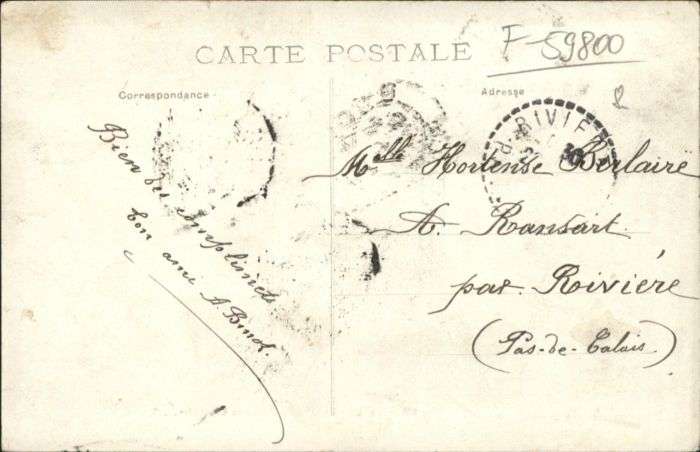 CARTE POSTALE
F-59800
Correspondance
Adresse
Bien des compliments
ton ami A
RIVIÈ
Mlle Hortense Berlaire
A. Ransart
par Rivière
(Pas-de-Calais)